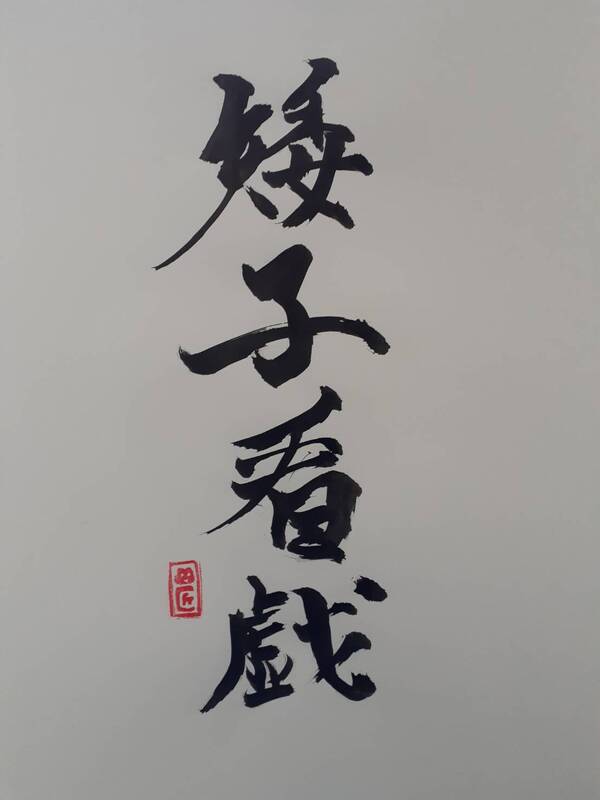 矮子看戲